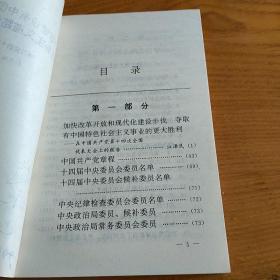 目录
第一部分
加快改革开放和现代化建设步伐 夺取
有中国特色社会主义事业的更大胜利
——在中国共产党第十四次全国
代表大会上的报告……江泽民(1)
中国共产党章程……(43)
十四届中央委员会委员名单……(69)
十四届中央委员会候补委员名单
……(71)
中央纪律检查委员会委员名单……(73)
中央政治局委员、候补委员……(75)
中央政治局常务委员会委员……(75)
- 5 -